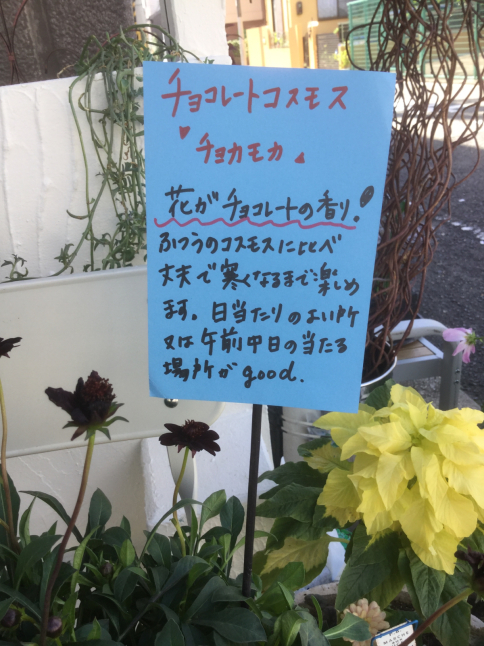 チョコレートコスモス
チョカモカ
花がチョコレートの香り!
ふつうのコスモスに比べ
丈夫で寒くなるまで楽しめ
ます。日当たりのよい所
又は午前中日の当たる
場所がgood.
MARCHE